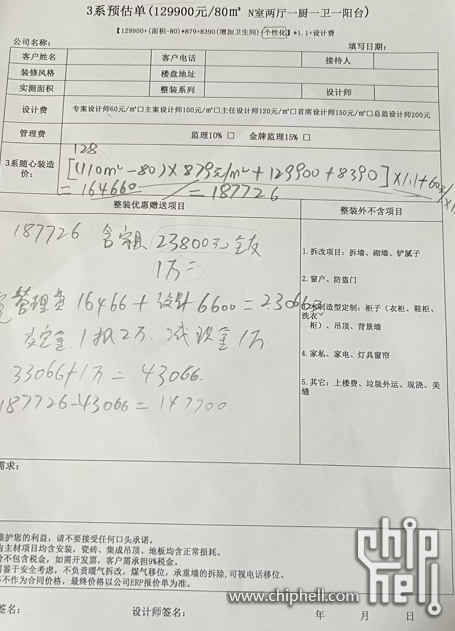 3系预估单(129900元/80㎡ N室两厅一厨一卫一阳台)
【129900+(面积-80)*879元+8390(增加卫生间)+个性化】*1.1+设计费
公司名称: 填写日期:
客户姓名 客户电话 接待人
装修风格 楼盘地址
实测面积 整装系列 设计师
设计费 专案设计师60元/㎡□主案设计师100元/㎡□主任设计师120元/㎡□首席设计师150元/㎡□总监设计师200元
管理费 监理10% □ 金牌监理15% □
128
3系随心装造价: [(110m²-80)×879元/m²+129900+8390]×1.1+60元/
=164660 =187726
整装优惠赠送项目 整装外不含项目
187726 含 23800元
1万
1.拆改项目: 拆墙、砌墙、铲腻子
2.窗户、防盗门
管理费16466+设计6600=23066
木制造型定制: 柜子(衣柜、鞋柜、洗衣柜)、吊顶、背景墙
交定金1抵2万 减现金1万
4.家私、家电、灯具窗帘
33066+1万=43066
5.其它: 上楼费、垃圾外运、现浇、美缝
187726-43066=147700
需求:
维护您的利益, 请不要接受任何口头承诺。
内主材项目均含安装, 瓷砖、集成吊顶、地板均含正常损耗。
价不包含税金, 如需开发票, 客户需承担9%税金。
司鉴于安全考虑, 不负责暖气拆改, 煤气移位, 承重墙的拆除, 可视电话移位。
不作为合同价格, 最终价格以公司ERP报价单为准。
签名: 设计师签名: 年 月 日
chip hell
www.chiphell.com